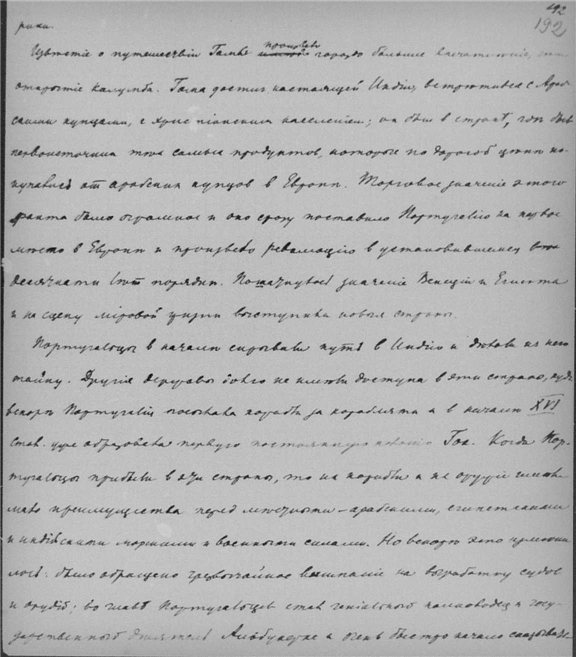 192
192
рики.
Извѣстіе о путешествіи Гамы произвело гораздо большее впечатленіе, чѣм
открытіе Колумба. Гама достиг настоящей Индіи, встрѣтился с Араб-
скими купцами, с христіанским населеніем; он был в странѣ, гдѣ был
первоисточник тѣх самых продуктов, которые по дорогой цѣнѣ по-
купались от арабских купцов в Европѣ. Торговое значеніе этого
факта было огромное и оно сразу поставило Португалію на первое
мѣсто в Европѣ и произвело революцію в установившемся
десятками лѣт порядкѣ. Пошатнулось значеніе Венеціи и Египта
и на сцену міровой жизни выступили новыя страны.
Португальцы в началѣ скрывали путь в Индію и дѣлали из него
тайну. Другія державы долго не имѣли доступа в эти страны, куда
вскорѣ Португалія посылала корабль за кораблем а в началѣ XVI
стол. уже образовала первую постоянную колонію Гоа. Когда Пор-
тугальцы прибыли в эти страны, то их корабли и их орудія имѣли
мало преимущества перед мѣстными – арабскими, египетскими
и индѣйскими морскими и военными силами. Но вскорѣ это измѣни-
лось: было обращено чрезвычайное вниманіе на выработку судов
и орудій; во главѣ Португальцев стал геніальный полководец и госу-
дарственный дѣятель Альбукерке и очень быстро начало сказываться